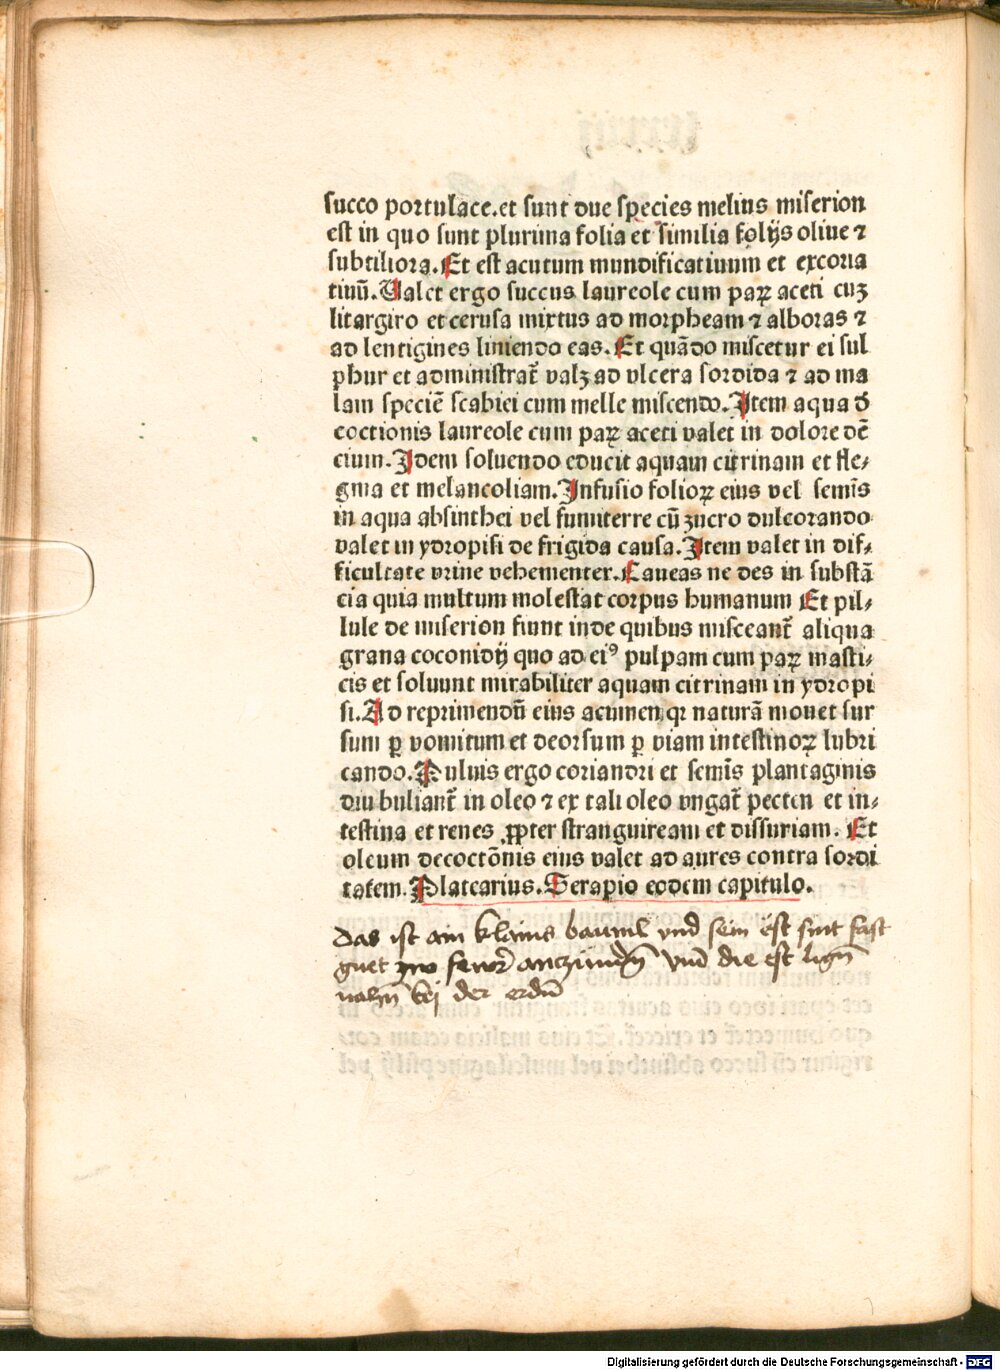 succo portulace.et sunt due species melius miserion
est in quo sunt plurima folia et similia folijs oliue ⁊
subtiliora. Et est acutum mundificatiuum et excoria
tiuū. Ualet ergo succus laureole cum paꝝ aceti cuꝫ
litargiro et cerusa mixtus ad morpheam ⁊ alboras ⁊
ad lentigines liniendo eas. Et quādo miscetur ei sul
phur et administrat᷑ valꝫ ad vlcera sordida ⁊ ad ma
lam speciē scabiei cum melle miscendo. Item aqua đ
coctionis laureole cum paꝝ aceti valet in dolore dē
cium. Idem soluendo educit aquam citrinam et fle⸗
gma et melancoliam. Infusio folioꝝ eius vel semīs
in aqua absinthei vel fumiterre cū zucro dulcorando
valet in ydropisi de frigida causa. Item valet in dif⸗
ficultate vrine vehementer. Caueas ne des in substā
cia quia multum molestat corpus humanum Et pil⸗
lule de miserion fiunt inde quibus misceant᷑ aliqua
grana coconidij quo ad eiꝰ pulpam cum paꝝ masti⸗
cis et soluunt mirabiliter aquam citrinam in ydropi
si. Ad reprimendū eius acumen qꝛ naturā mouet sur
sum ꝑ vomitum et deorsum ꝑ viam intestinoꝝ lubri
cando. Puluis ergo coriandri et semīs plantaginis
diu buliant᷑ in oleo ⁊ ex tali oleo vngat᷑ pecten et in⸗
testina et renes ꝓpter stranguiream et dissuriam. Et
oleum decoctōnis eius valet ad aures contra sordi
tatem. Platearius. Serapio eodem capitulo.
das ist ain klains bauml vnd sein est sint fast
guet zw fewr anczünden vnd die est lign
nahn bej der erdn